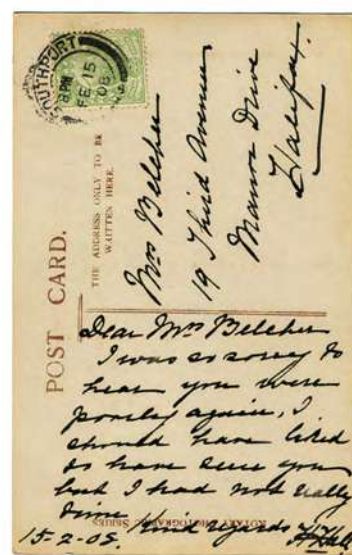 SOUTHPORT
8 PM
FE 15
08
POST CARD.
THE ADDRESS ONLY TO BE
WRITTEN HERE.
Mrs Belcher
19 Third Avenue
Manor Drive
Halifax.
Dear Mrs Belcher
I was so sorry to
hear you were
poorly again, I
should have liked
to have seen you
but I had not really
time Kind regards
ROTARY PHOTOGRAPHIC SERIES
15-2-08.